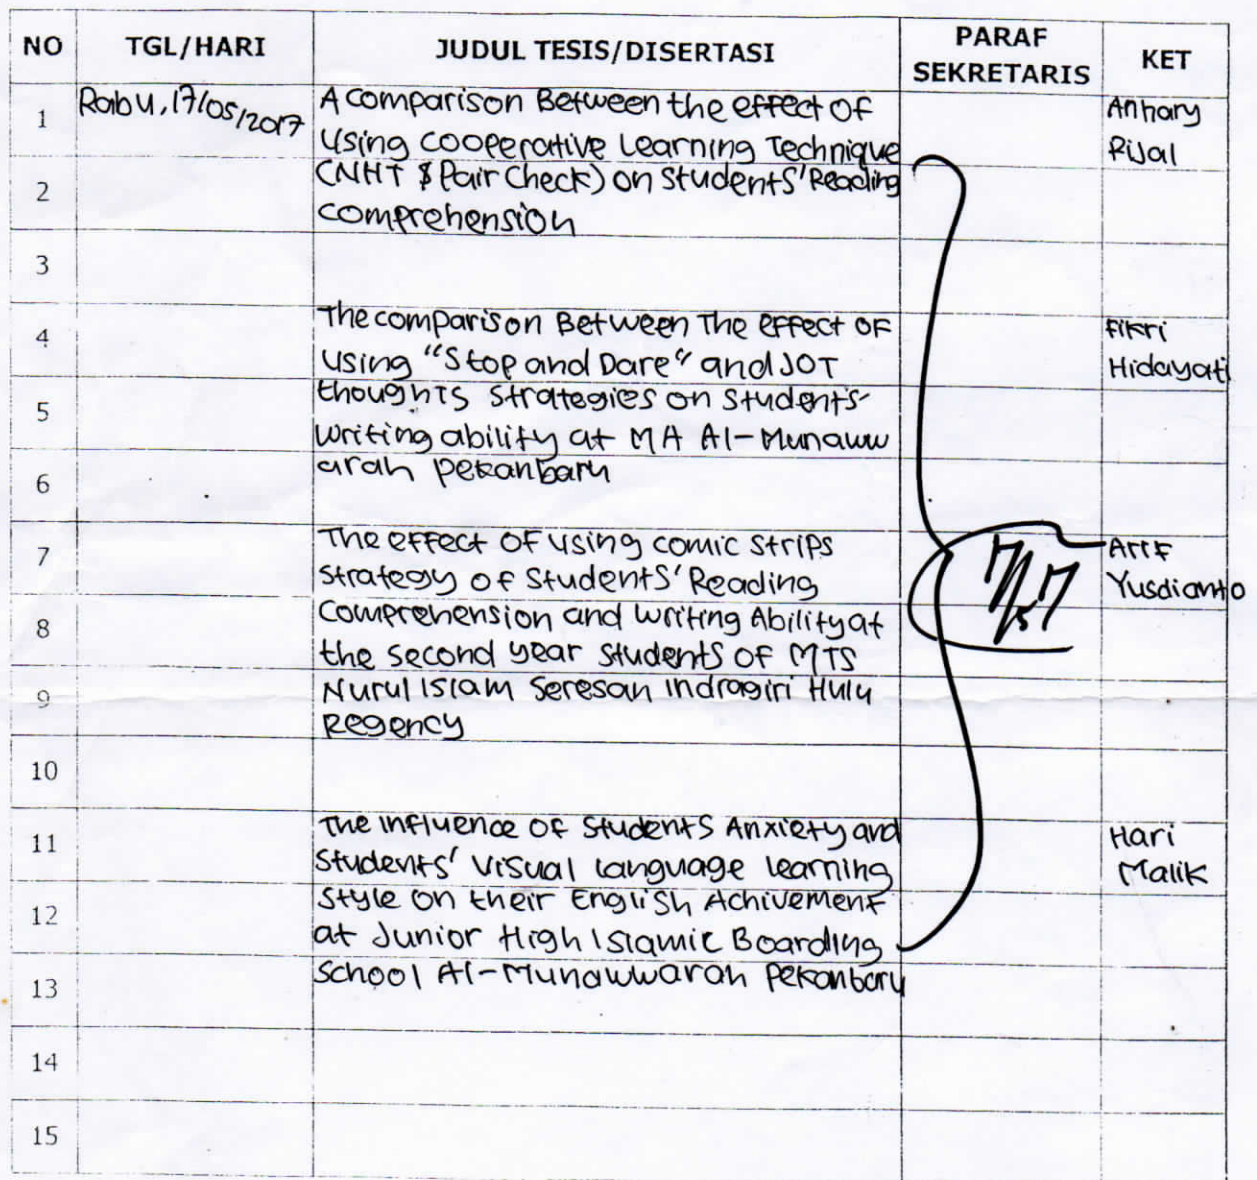 NO TGL/HARI JUDUL TESIS/DISERTASI PARAF SEKRETARIS KET
1 Rabu, 17/05/2017 A comparison Between the effect of Anhary
using cooperative Learning Technique Rijal
2 (NHT & Pair Check) on Students' Reading
comprehension
3
4 The comparison Between The effect of Fikri
using "Stop and Dare" and JOT Hidayati
5 thoughts strategies on students'
writing ability at MA Al-Munaww
6 arah Pekanbaru
7 The effect of using comic strips Arif
strategy of Students' Reading Yusdianto
8 Comprehension and writing Ability at
the second year students of MTS
9 Nurul Islam Seresan Indragiri Hulu
Regency
10
11 The influence of Students Anxiety and Hari
Students' Visual Language Learning Malik
12 style on their English Achivement
at Junior High Islamic Boarding
13 School Al-Munawwarah Pekanbaru
14
15